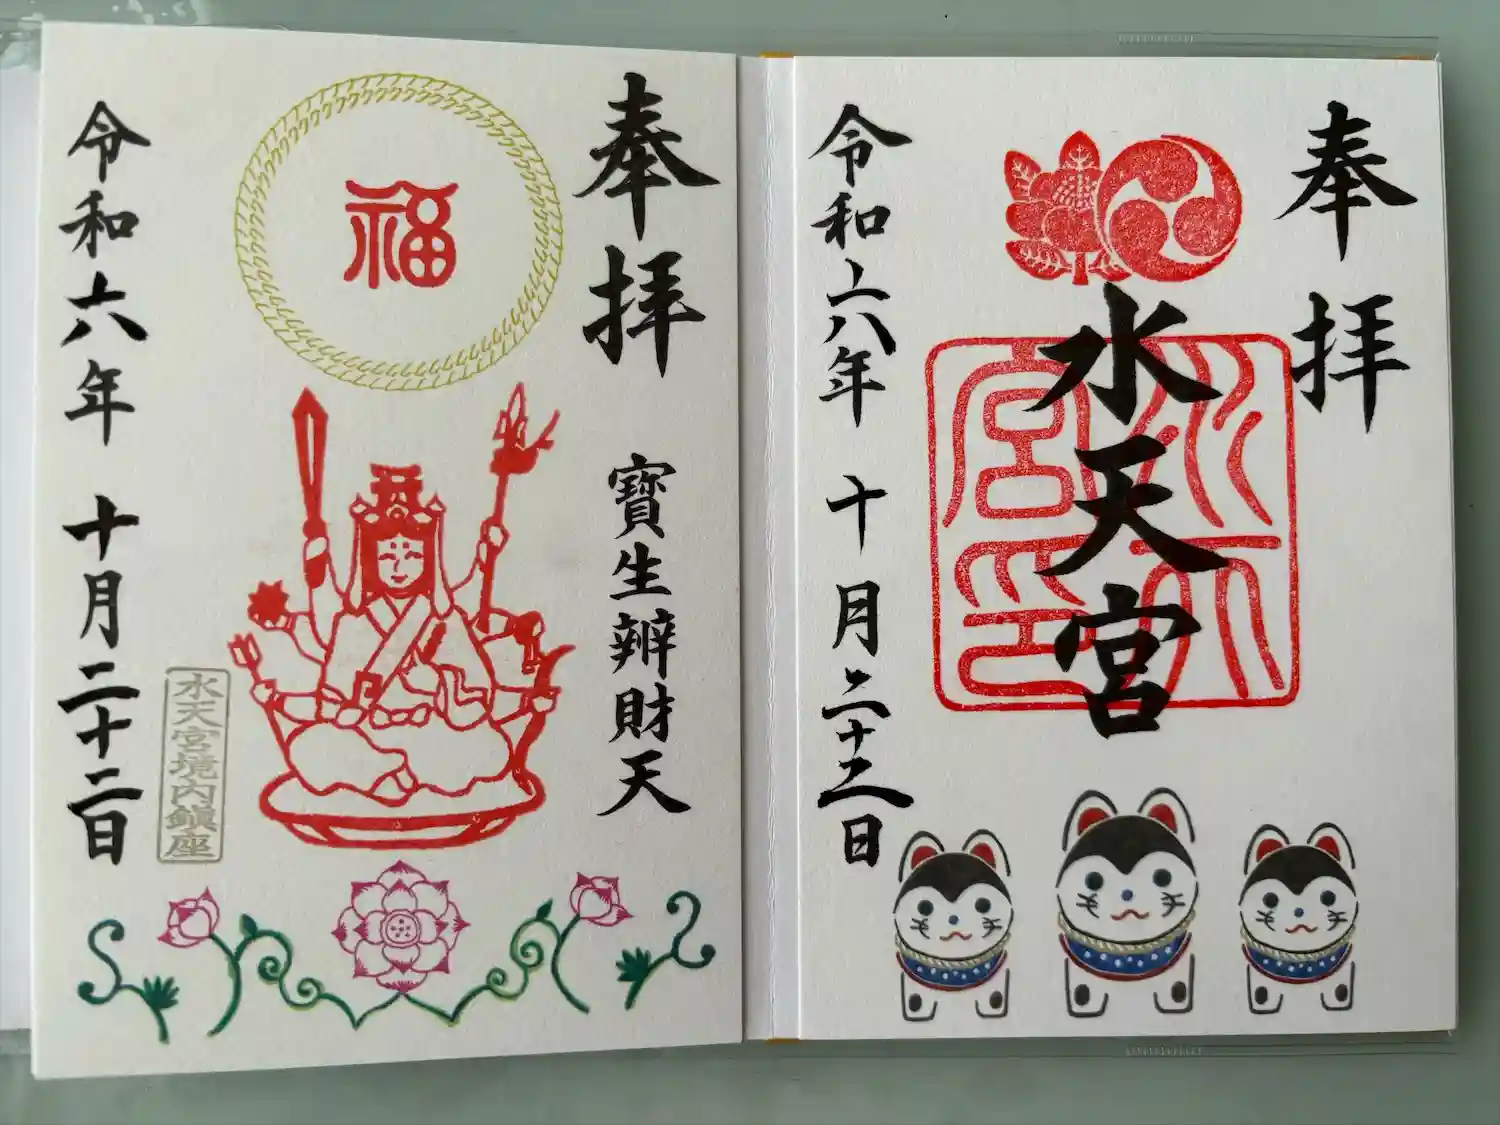 奉拝
水天宮
水天宮印
令和六年 十月二十二日
奉拝
寶生辨財天
福
水天宮境内鎮座
令和六年 十月二十二日